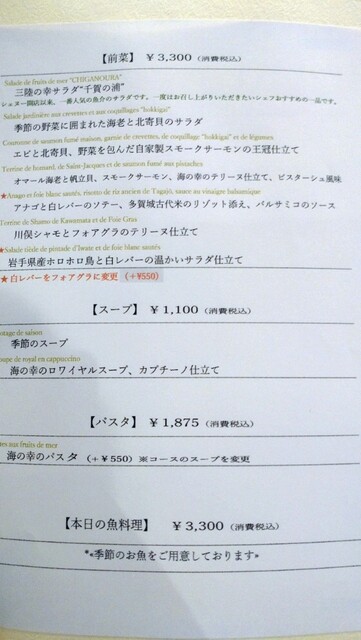 【前菜】 ¥3,300 (消費税込)
Salade de fruits de mer "CHIGANOURA"
三陸の幸サラダ"千賀の浦"
シェヌー開店以来、一番人気の魚介のサラダです。一度はお召し上がりいただきたいシェフおすすめの一品です。
Salade jardinière aux crevettes et aux coquillages "hokkigai"
季節の野菜に囲まれた海老と北寄貝のサラダ
Couronne de saumon fumé maison, garnie de crevettes, de coquillage "hokkigai" et de légumes
エビと北寄貝、野菜を包んだ自家製スモークサーモンの王冠仕立て
Terrine de homard, de Saint-Jacques et de saumon fumé aux pistaches
オマール海老と帆立貝、スモークサーモン、海の幸のテリーヌ仕立て、ピスターシュ風味
★Anago et foie blanc sautés, risotto de riz ancien de Tagajô, sauce au vinaigre balsamique
アナゴと白レバーのソテー、多賀城古代米のリゾット添え、バルサミコのソース
Terrine de Shamo de Kawamata et de Foie Gras
川俣シャモとフォアグラのテリーヌ仕立て
★Salade tiède de pintade d'Iwate et de foie blanc sautés
岩手県産ホロホロ鳥と白レバーの温かいサラダ仕立て
★白レバーをフォアグラに変更 (+¥550)
【スープ】 ¥1,100 (消費税込)
otage de saison
季節のスープ
oupe de royal en cappuccino
海の幸のロワイヤルスープ、カプチーノ仕立て
【パスタ】 ¥1,875 (消費税込)
tes aux fruits de mer
海の幸のパスタ (+¥550) ※コースのスープを変更
【本日の魚料理】 ¥3,300 (消費税込)
*«季節のお魚をご用意しております»